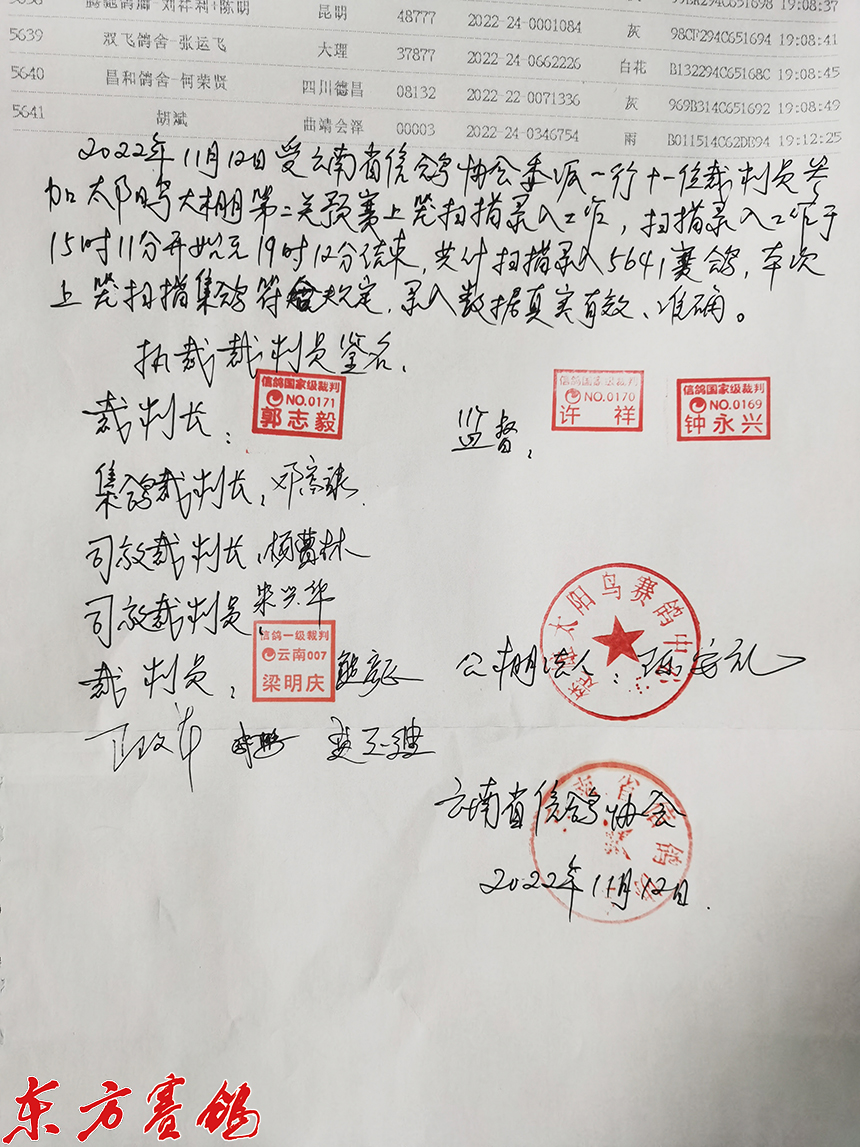 刘祥利+陈明 昆明 48777 2022-24-0001084 灰 99BR294C651698 19:08:37
5639 双飞鸽舍-张运飞 大理 37877 2022-24-0662226 白花 98CF294C651694 19:08:41
5640 昌和鸽舍-何荣贤 四川德昌 08132 2022-22-0071336 灰 B132294C65168C 19:08:45
969B314C651692 19:08:49
5641 胡斌 曲靖会泽 00003 2022-24-0346754 雨 B011514C62DE94 19:12:25
2022年11月12日受云南省信鸽协会委派一行十一位裁判员参
加太阳鸟大棚第二关预赛上笼扫描录入工作，扫描录入工作于
15时11分开始至19时12分结束，共计扫描录入5641赛鸽，本次
上笼扫描集鸽符合规定，录入数据真实有效、准确。
执裁裁判员签名：
裁判长： 信鸽国家级裁判 NO.0171 郭志毅 监督： 信鸽国家级裁判 NO.0170 许祥 信鸽国家级裁判 NO.0169 钟永兴
集鸽裁判长：
司放裁判长：
司放裁判员：
裁判员： 信鸽一级裁判 云南007 梁明庆
太阳鸟赛鸽中
公棚法人：
云南省信鸽协会
2022年11月12日.
东方赛鸽